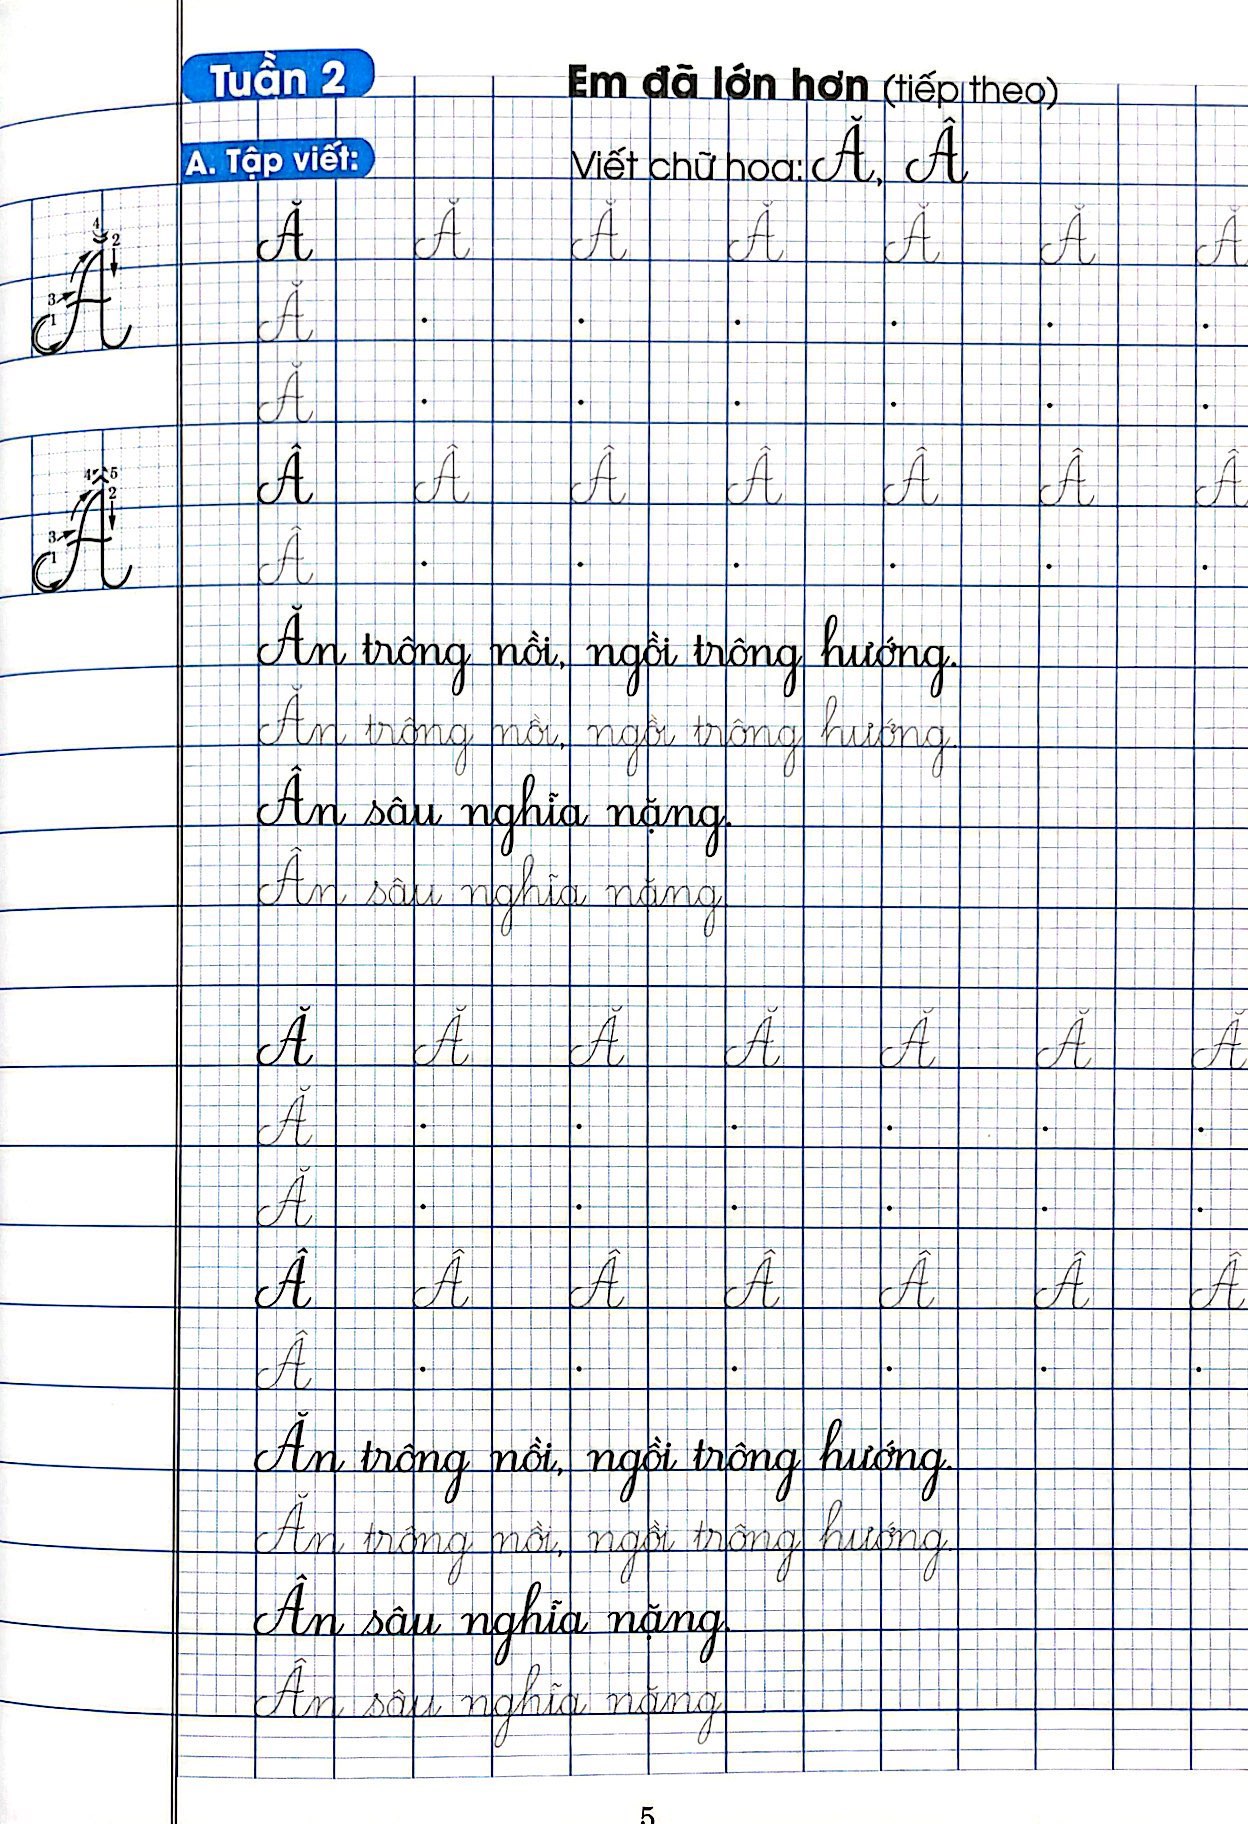 Tuần 2
Em đã lớn hơn (tiếp theo)
A. Tập viết:
Viết chữ hoa: Ă, Â
Ă Ă Ă Ă Ă Ă Ă
4
2
3
1
Ă
Ă
Ă
 Â Â Â Â Â Â
4 5
2
3
1
Â
Â
Ăn trông nồi, ngồi trông hướng.
Ăn trông nồi, ngồi trông hướng.
Ân sâu nghĩa nặng.
Ân sâu nghĩa nặng.
Ă Ă Ă Ă Ă Ă Ă
Ă
Ă
 Â Â Â Â Â Â
Â
Ăn trông nồi, ngồi trông hướng.
Ăn trông nồi, ngồi trông hướng.
Ân sâu nghĩa nặng.
Ân sâu nghĩa nặng.
5